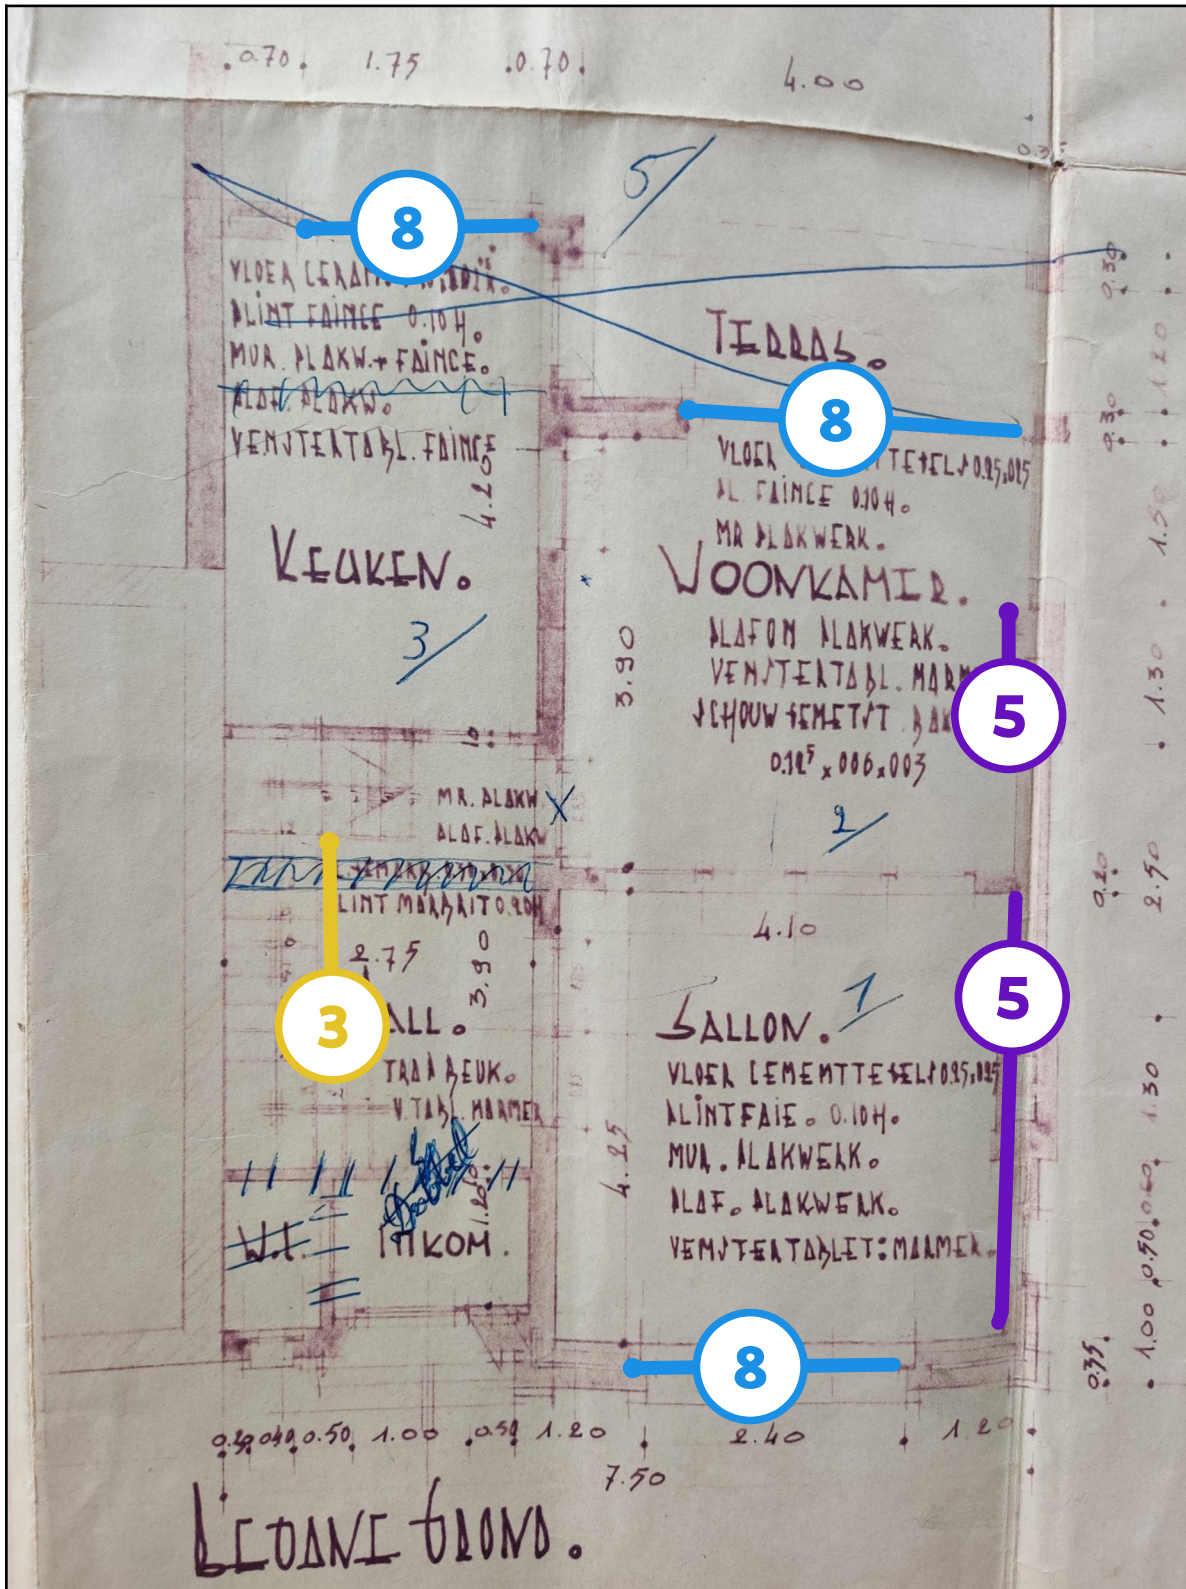 0.70 1.75 0.70 4.00
5
8
0.30
PLINT FAINCE 0.10 H.
MUR. PLAKW. + FAINCE.
PLAF. PLAKW.
VENSTERTABL. FAINCE
4.20
KEUKEN.
3
TERRAS.
8
1.20
0.30
VLOER
PL. FAINCE 0.10 H.
MR PLAKWERK.
WOONKAMER.
PLAFON PLAKWERK.
VENSTERTABL. MARM
SCHOUW
0.12⁵ x 006 x 003
3.90
2
5
1.50
1.30
10
MR. PLAKW
PLAF. PLAKW
X
PLINT MARBRITO 0.20H
2.75
3.90
3
HALL.
TRAP BEUK.
V. TABL. MARMER
4.10
0.20
2.50
1
SALLON.
5
VLOER CEMENTTEGELS 0.25 x 025
PLINT FAIE. 0.10 H.
MUR. PLAKWERK.
PLAF. PLAKWERK.
VENSTERTABLET: MARMER.
4.25
1.30
0.60
0.50
1.00
0.35
W.C. INKOM.
1.20
8
0.20 0.40 0.50 1.00 0.50 1.20 2.40 1.20
7.50
GROND.